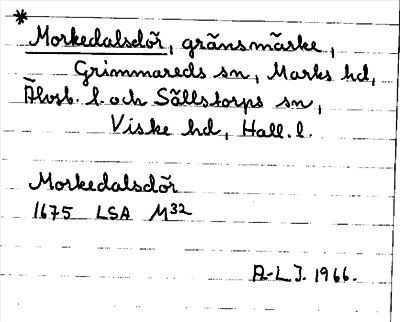 *
Morkedalsdör, gränsmäske,
Grimmareds sn, Marks hd,
Älvsb. l. och Sällstorps sn,
Viske hd, Hall. l.
Morkedalsdör
1675 LSA M32
A-L.J. 1966.